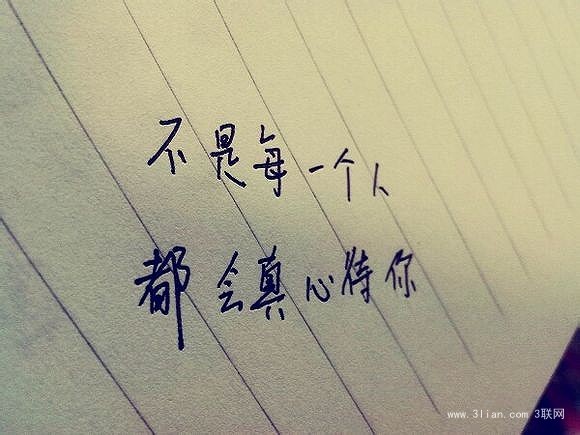 不是每一个人
都会真心待你
www.3lian.com 3联网